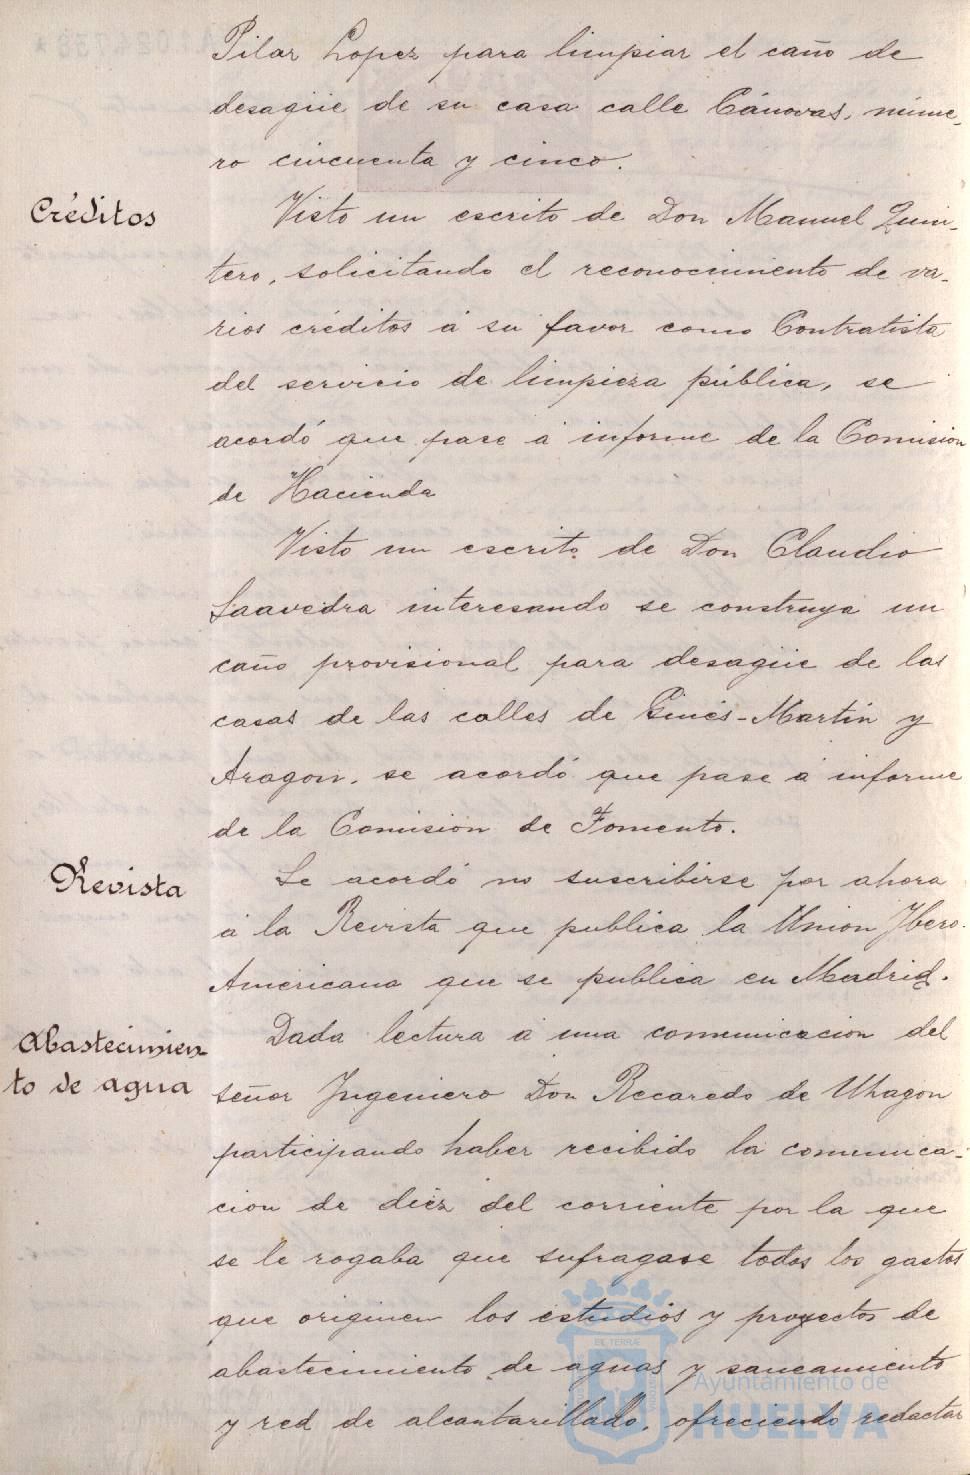 Pilar Lopez para limpiar el caño de
desagüe de su casa calle Cánovas, núme-
ro cincuenta y cinco.
Créditos
Visto un escrito de Don Manuel Quin-
tero, solicitando el reconocimiento de va-
rios créditos á su favor como Contratista
del servicio de limpieza pública, se
acordó que pase á informe de la Comisión
de Hacienda
Visto un escrito de Don Claudio
Saavedra interesando se construya un
caño provisional para desagüe de las
casas de las calles de Ginés-Martín y
Aragon, se acordó que pase á informe
de la Comisión de Fomento.
Revista
Se acordó no suscribirse por ahora
á la Revista que publica la Union Ibero-
Americana que se publica en Madrid.
Abastecimien-
to de agua
Dada lectura á una comunicacion del
señor Ingeniero Don Recaredo de Uhagon
participando haber recibido la comunica-
cion de diéz del corriente por la que
se le rogaba que sufragase todos los gastos
que originen los estudios y proyectos de
abastecimiento de aguas y saneamiento
y red de alcantarillado, ofreciendo redactar
Ayuntamiento de
HUELVA